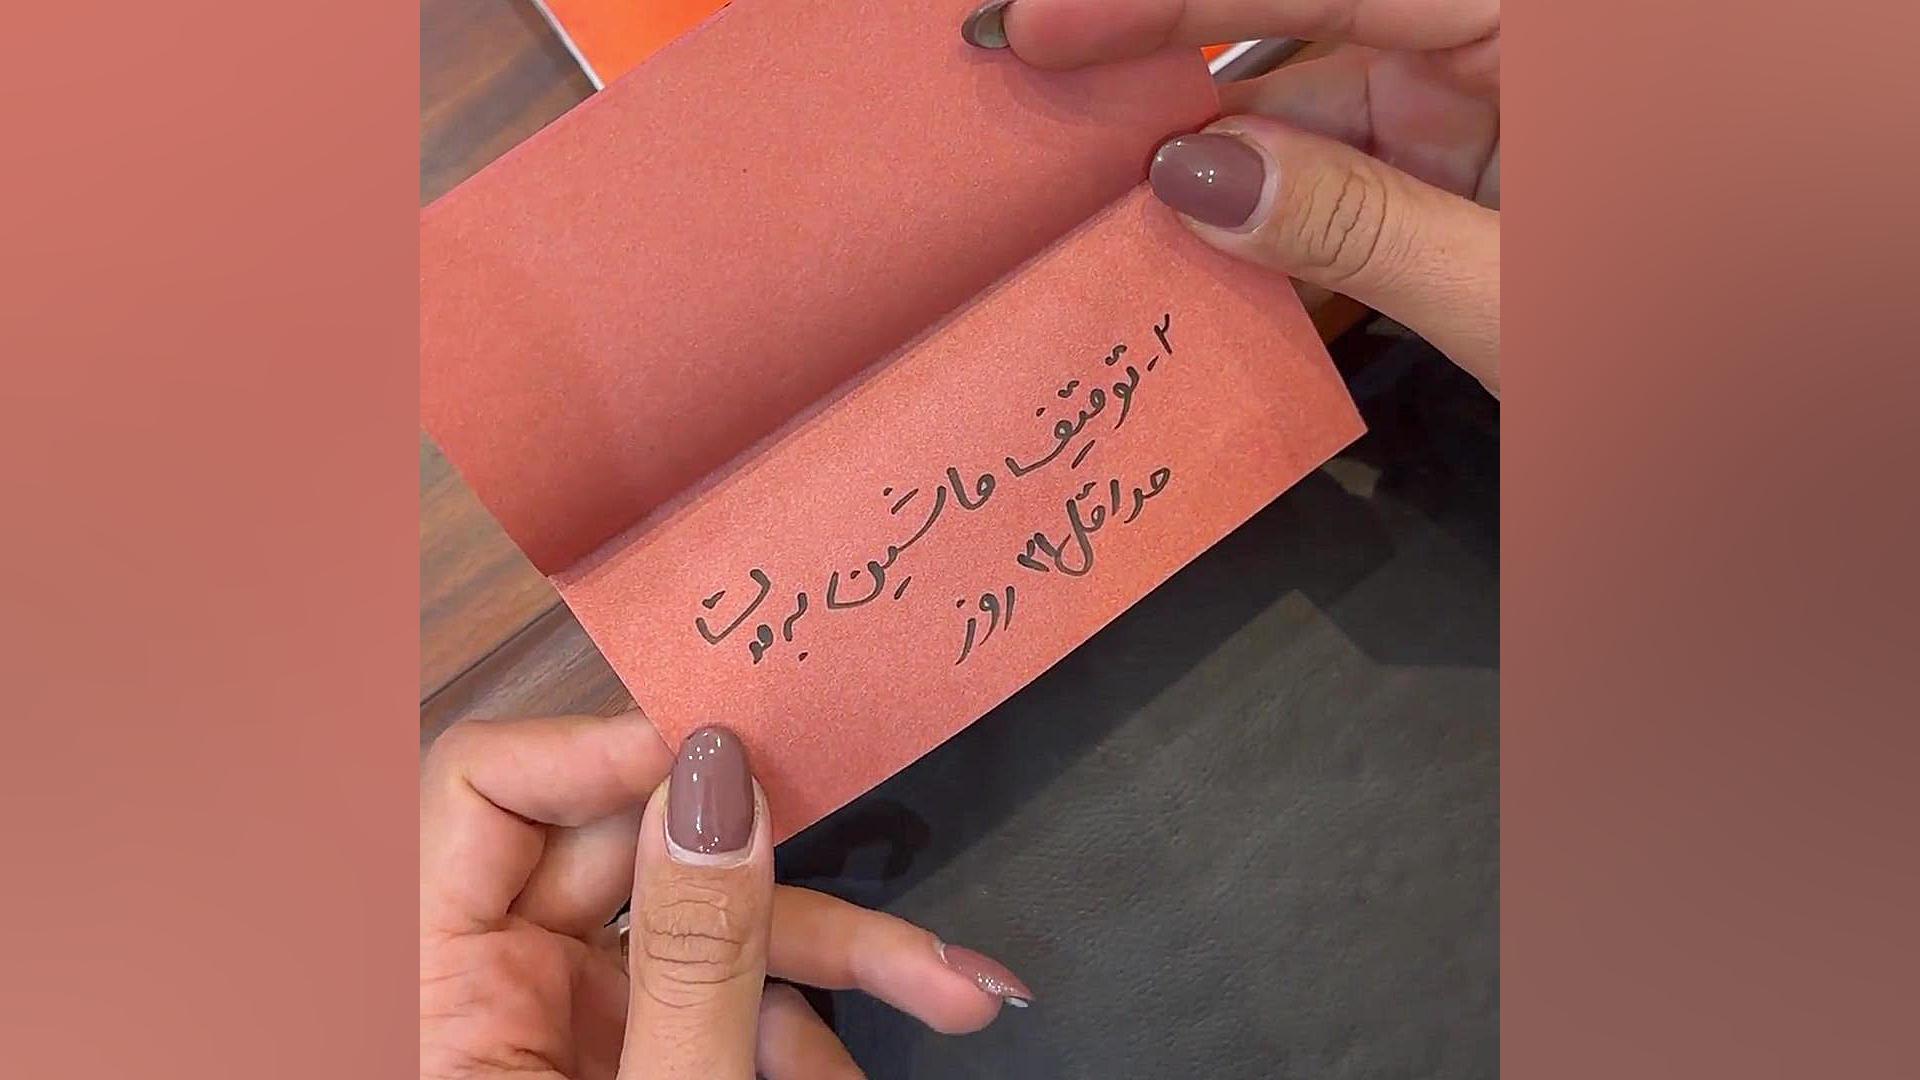 ۲- توقیف ماشین به مدت
حداقل ۲۱ روز